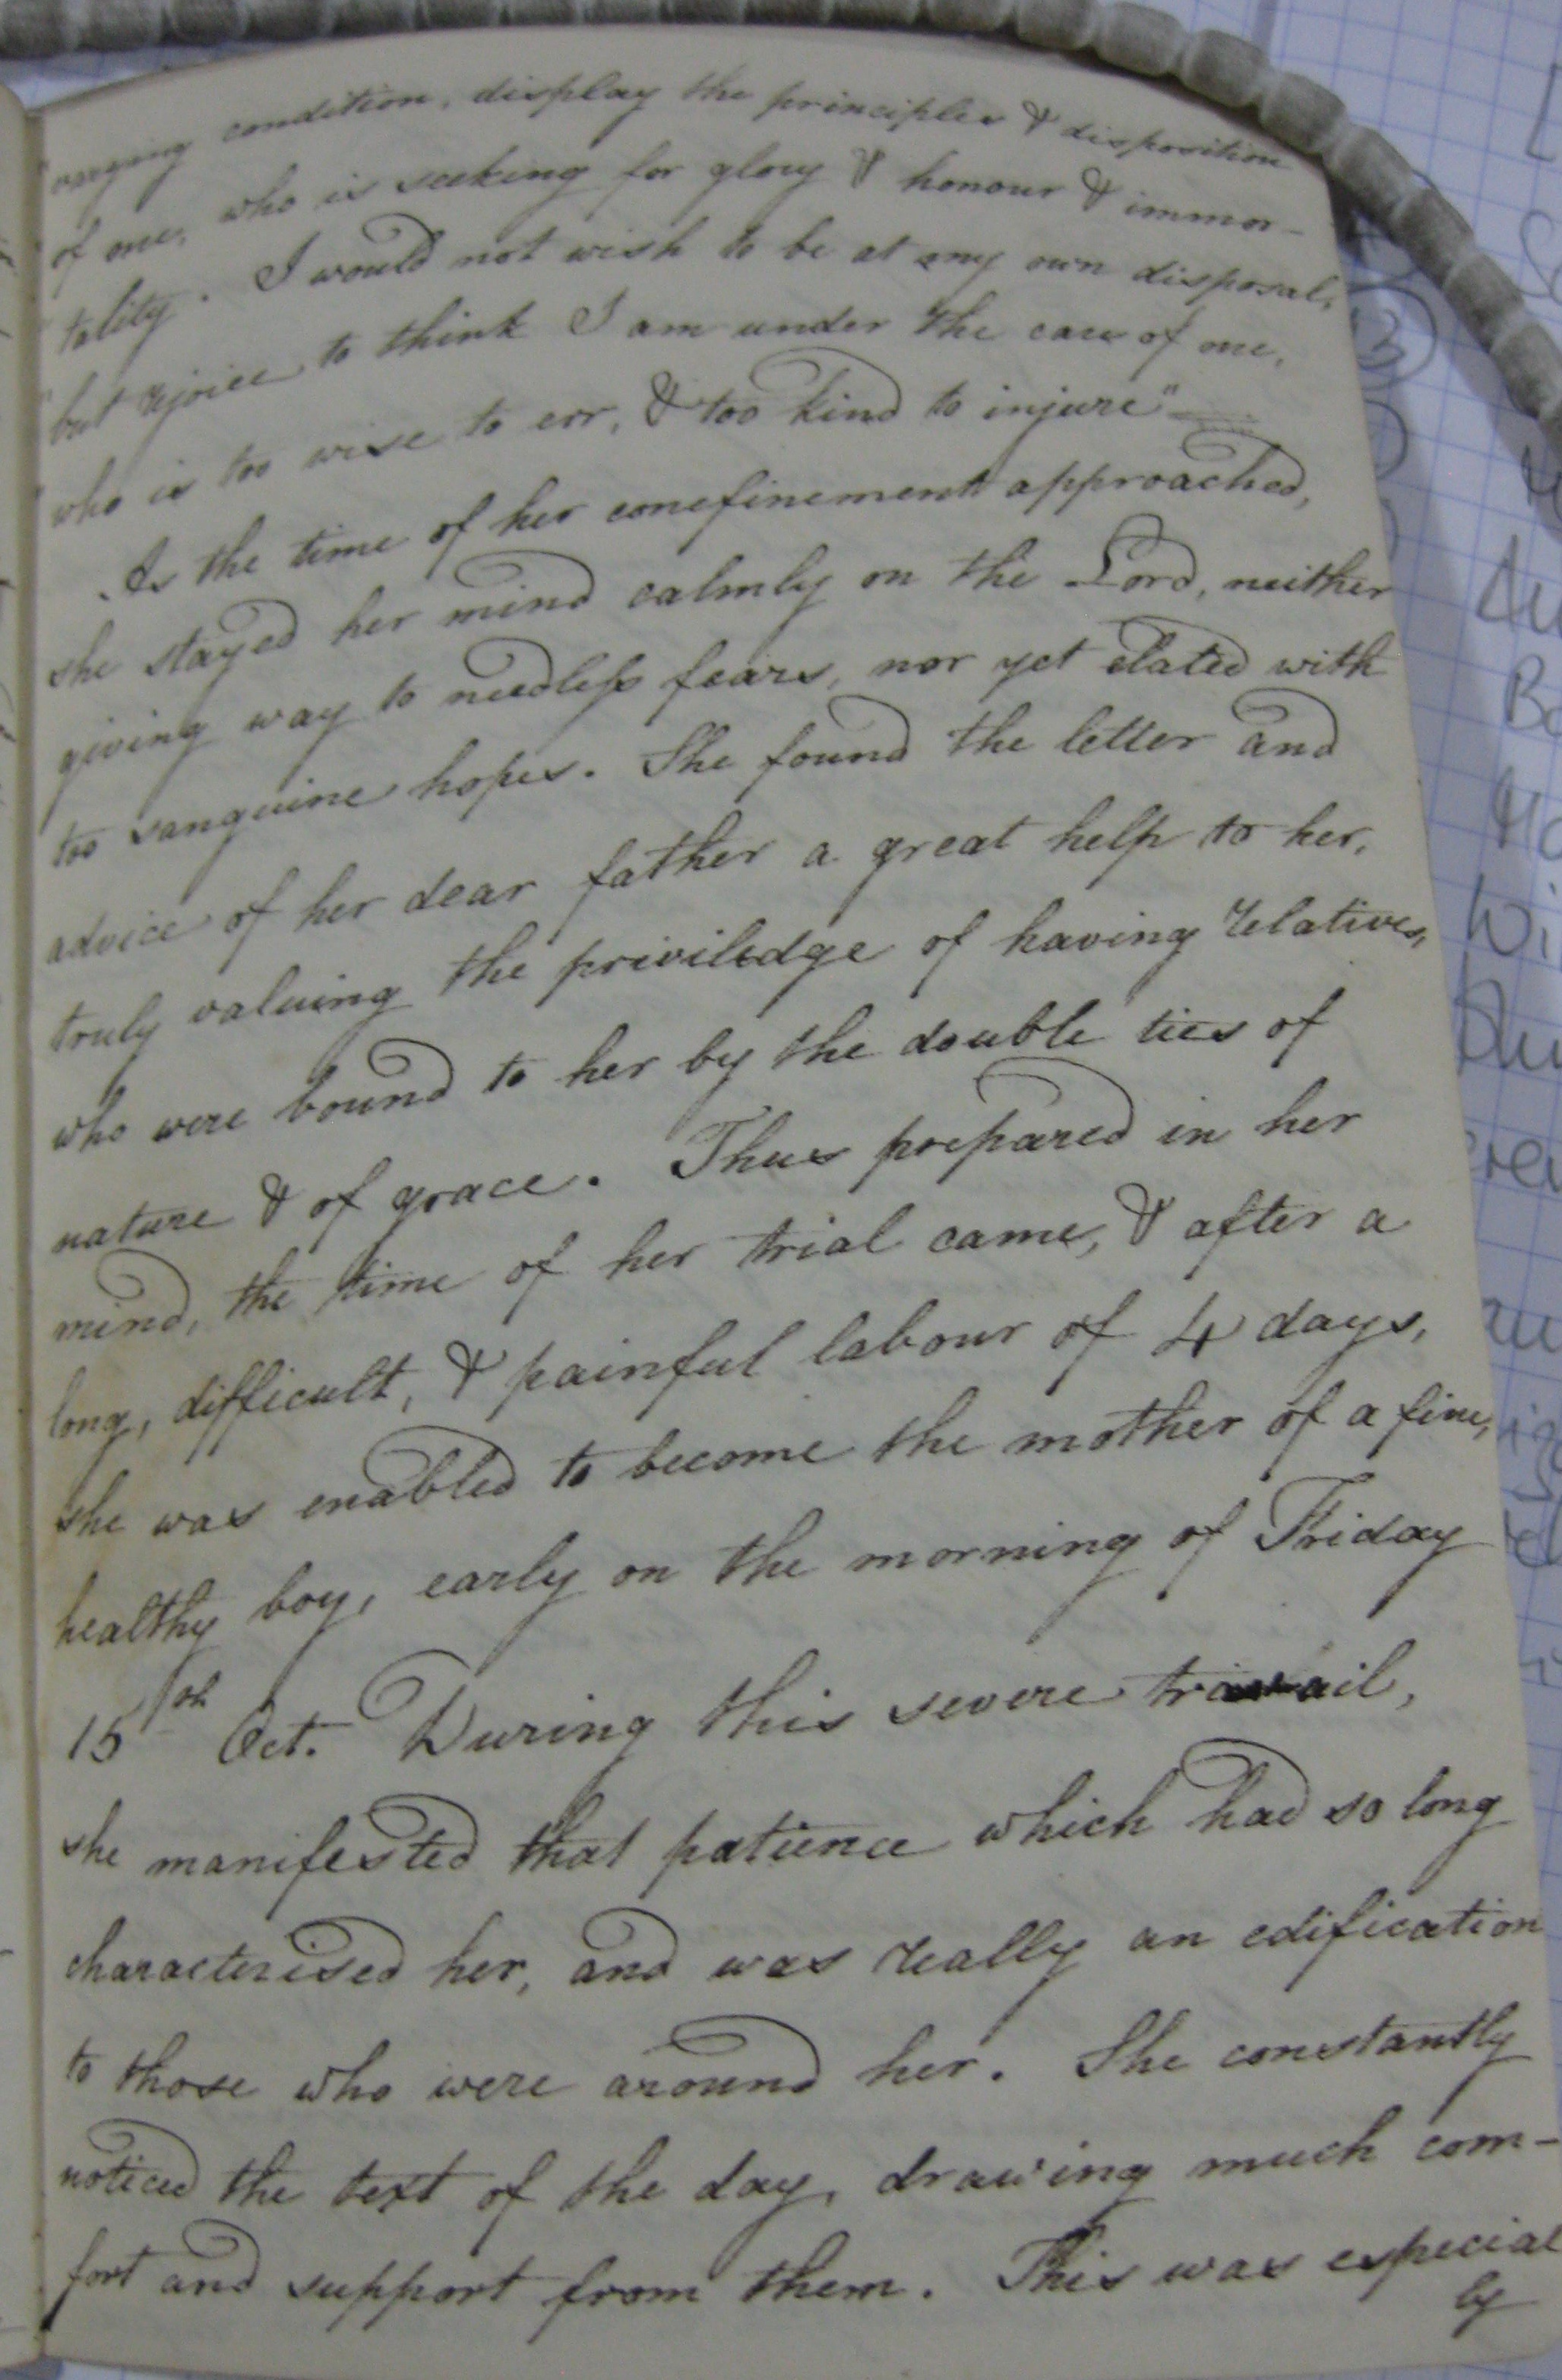 "varying condition, display the principles & disposition
"of one, who is seeking for glory & honour & immor-
"tality. I would not wish to be at my own disposal,
"but rejoice to think I am under the care of one,
"who is too wise to err, & too kind to injure"
As the time of her confinement approached,
she stayed her mind calmly on the Lord, neither
giving way to needless fears, nor yet elated with
too sanguine hopes. She found the letter and
advice of her dear father a great help to her,
truly valuing the priviledge of having relatives,
who were bound to her by the double ties of
nature & of grace. Thus prepared in her
mind, the time of her trial came, & after a
long, difficult, & painful labour of 4 days,
she was enabled to become the mother of a fine,
healthy boy, early on the morning of Friday
15th Oct. During this severe travail,
she manifested that patience which had so long
characterised her, and was really an edification
to those who were around her. She constantly
noticed the text of the day, drawing much com-
fort and support from them. This was especial
ly